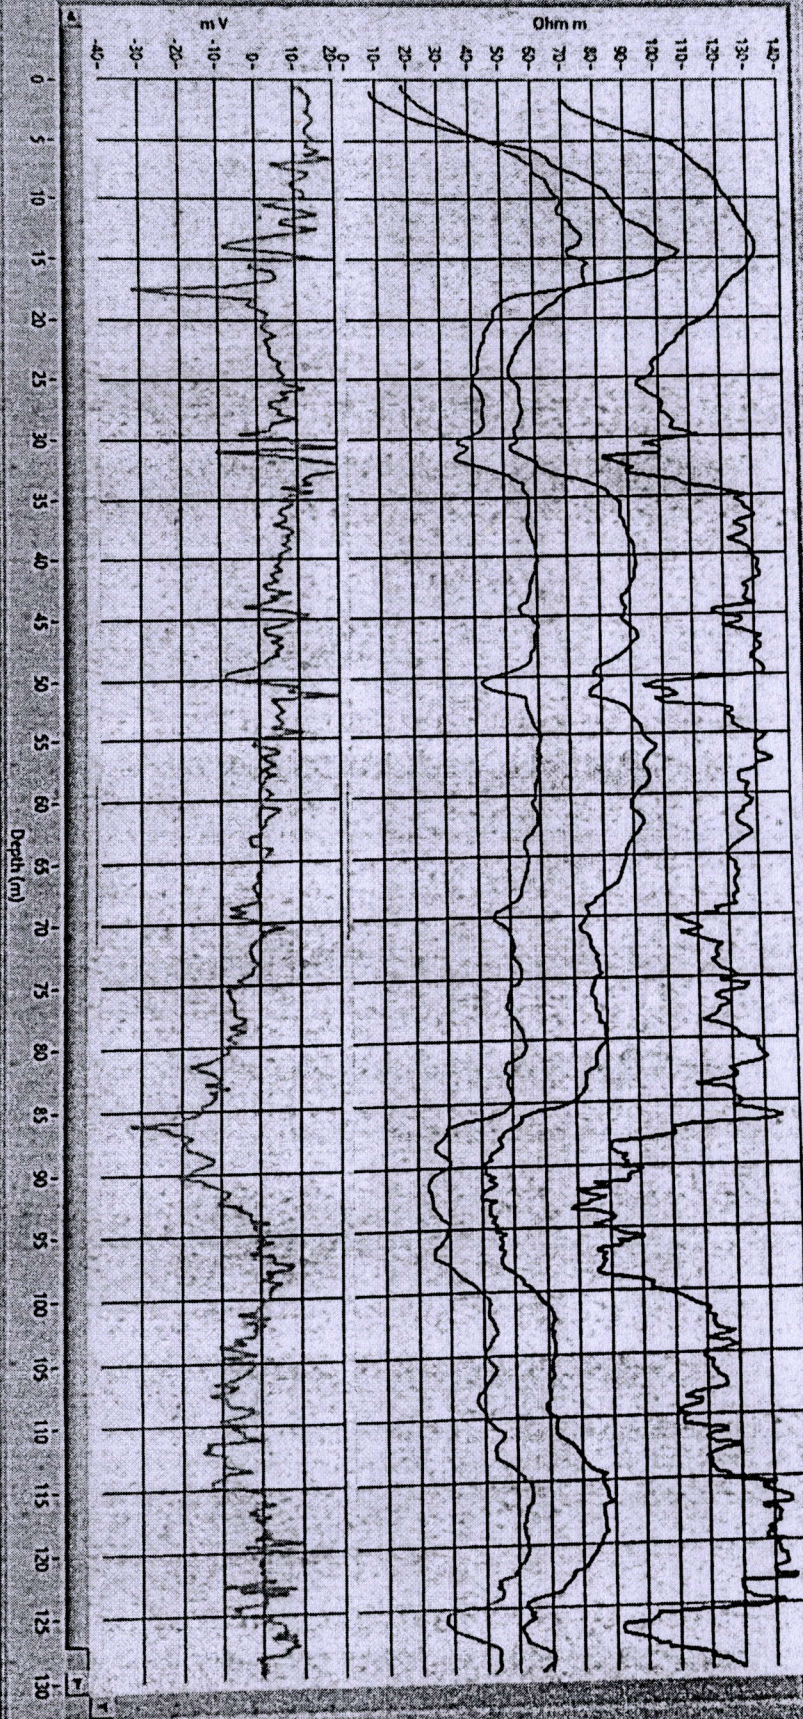 mV
Ohm m
-40-
-30-
-20-
-10-
-0-
10-
20-
0-
10-
20-
30-
40-
50-
60-
70-
80-
90-
100-
110-
120-
130-
140-
0
5
10
15
20
25
30
35
40
45
50
55
60
65
70
75
80
85
90
95
100
105
110
115
120
125
130
Depth (m)